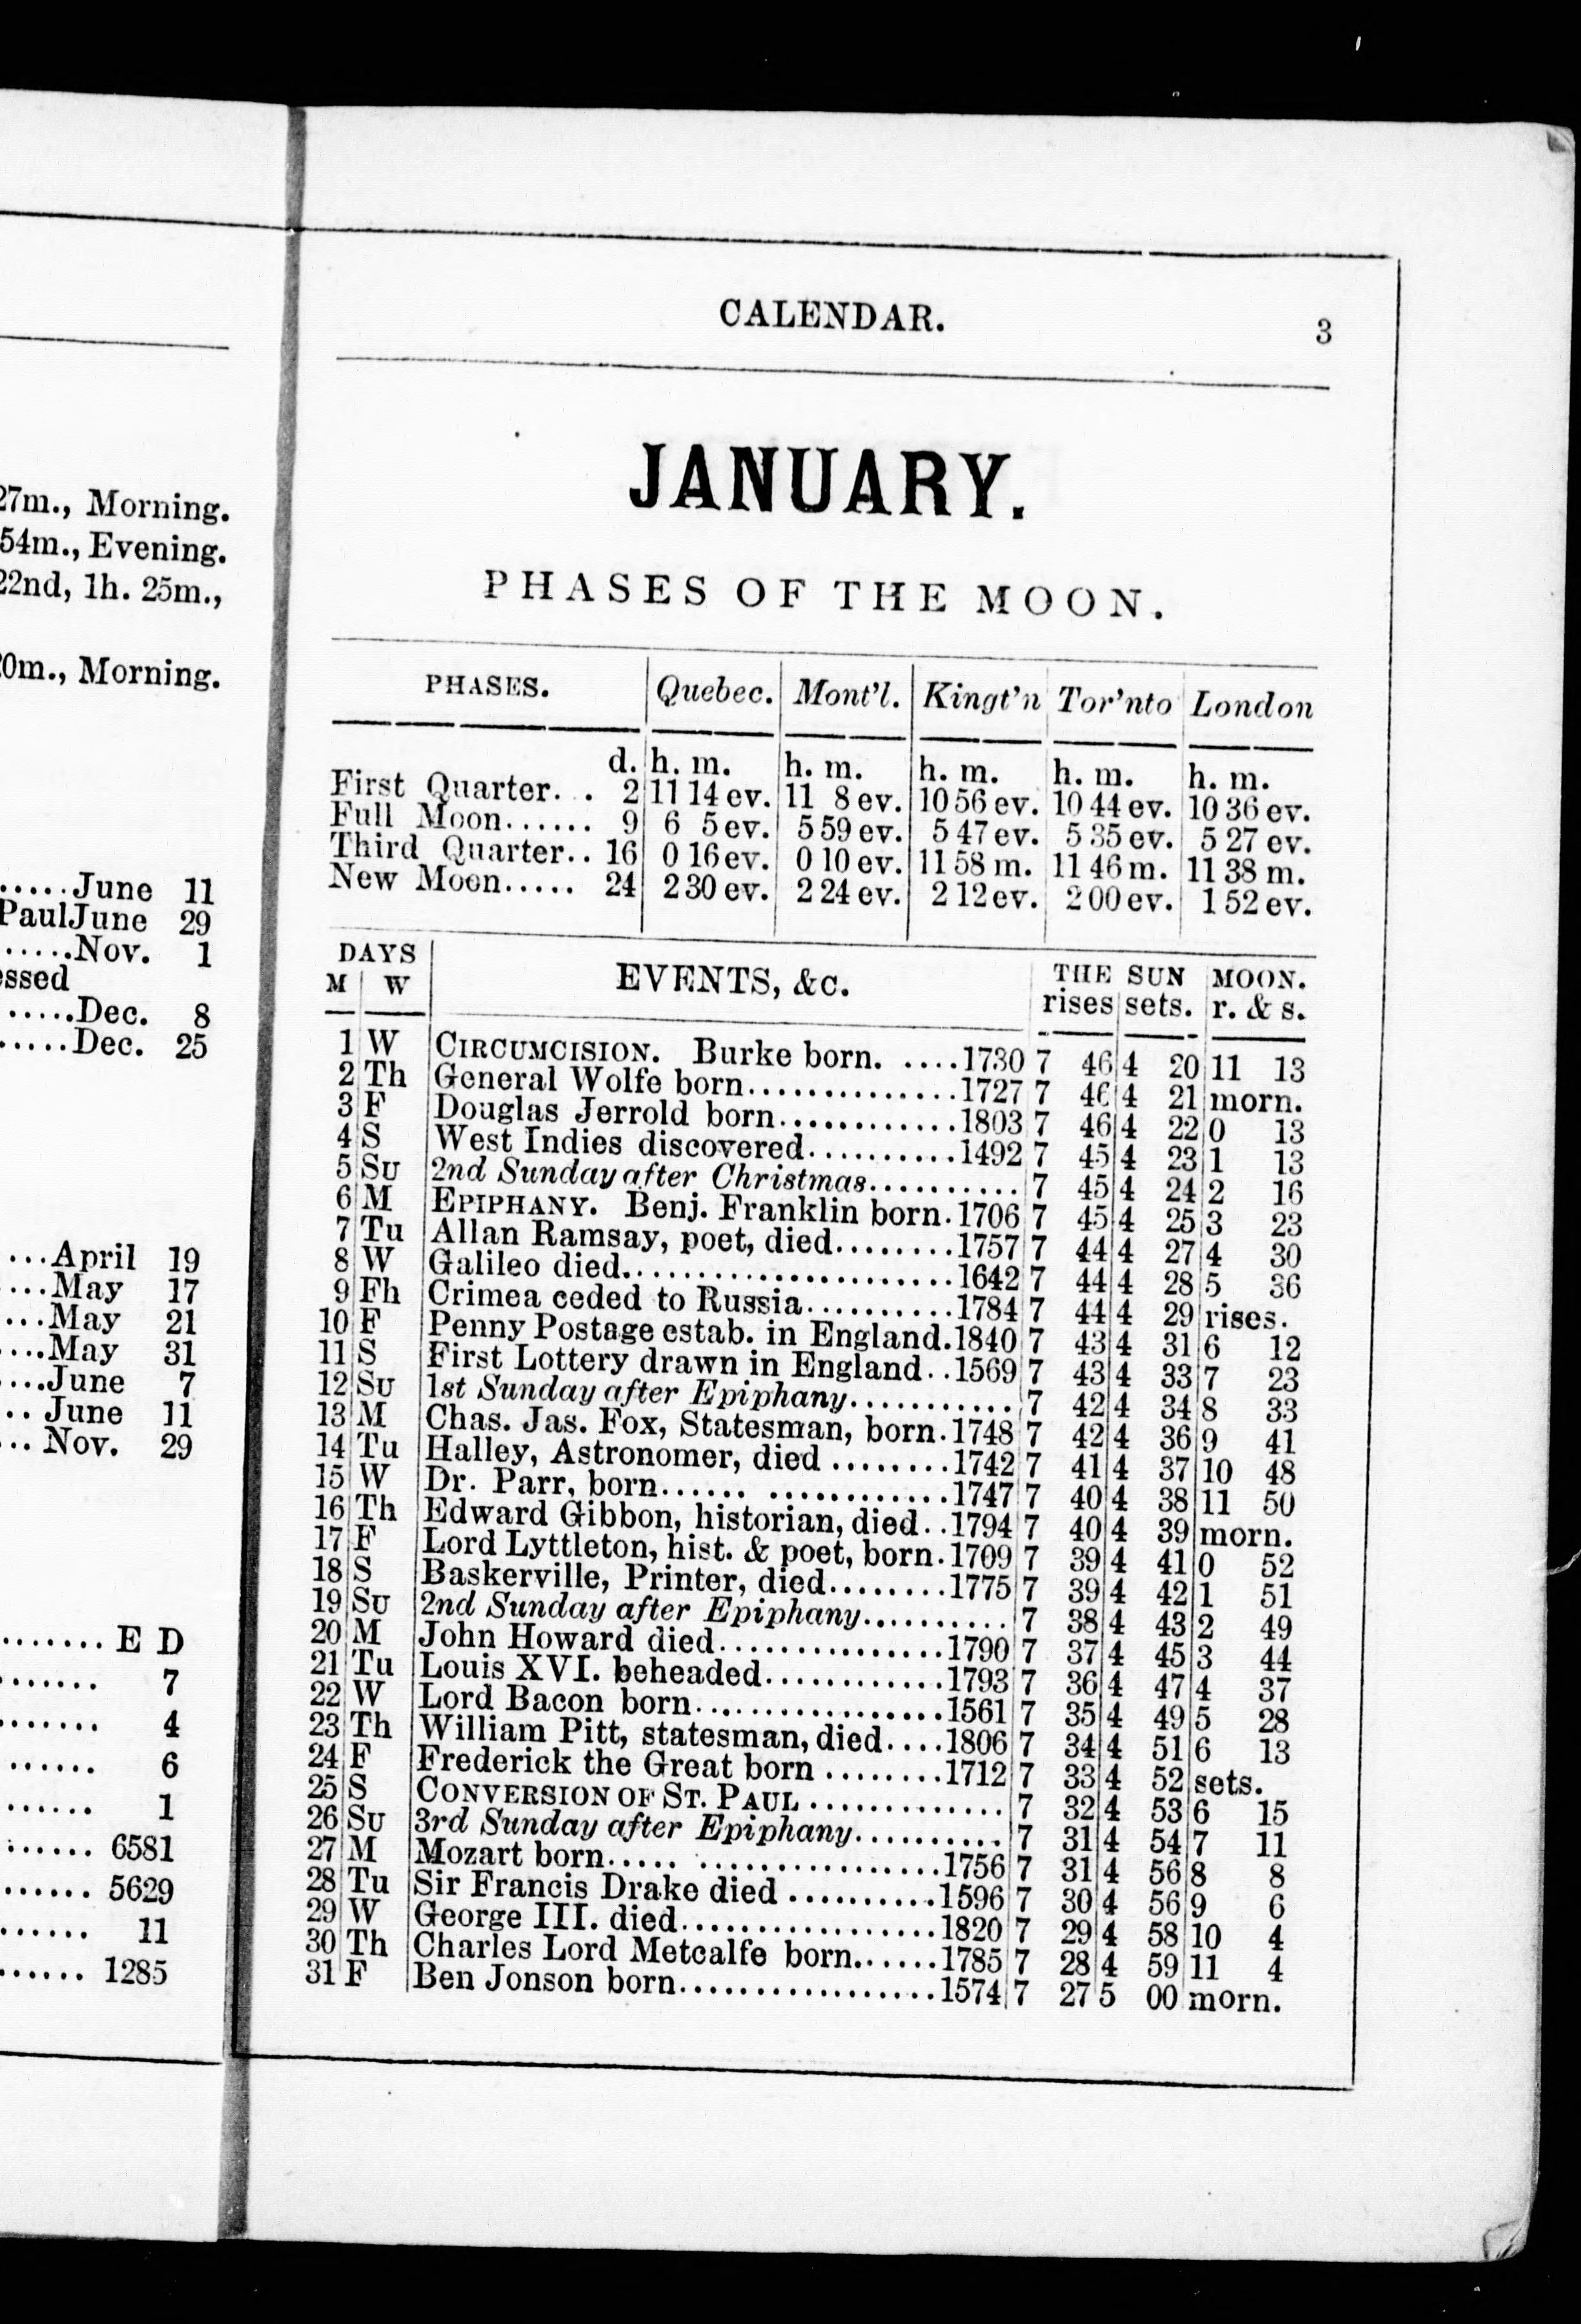 27m., Morning.
54m., Evening.
22nd, 1h. 25m.,
0m., Morning.
.....June 11
PaulJune 29
.....Nov. 1
essed
.....Dec. 8
.....Dec. 25
...April 19
...May 17
...May 21
...May 31
...June 7
.. June 11
... Nov. 29
........ E D
....... 7
....... 4
...... 6
...... 1
...... 6581
...... 5629
...... 11
...... 1285
CALENDAR. 3
JANUARY.
PHASES OF THE MOON.
PHASES. Quebec. Mont'l. Kingt'n Tor'nto London
d. h. m. h. m. h. m. h. m. h. m.
First Quarter. . . 2 11 14 ev. 11 8 ev. 10 56 ev. 10 44 ev. 10 36 ev.
Full Moon...... 9 6 5 ev. 5 59 ev. 5 47 ev. 5 35 ev. 5 27 ev.
Third Quarter.. 16 0 16 ev. 0 10 ev. 11 58 m. 11 46 m. 11 38 m.
New Moon..... 24 2 30 ev. 2 24 ev. 2 12 ev. 2 00 ev. 1 52 ev.
DAYS EVENTS, &c. THE SUN MOON.
M W rises sets. r. & s.
1 W CIRCUMCISION. Burke born. ....1730 7 46 4 20 11 13
2 Th General Wolfe born..............1727 7 46 4 21 morn.
3 F Douglas Jerrold born............1803 7 46 4 22 0 13
4 S West Indies discovered..........1492 7 45 4 23 1 13
5 SU 2nd Sunday after Christmas.......... 7 45 4 24 2 16
6 M EPIPHANY. Benj. Franklin born.1706 7 45 4 25 3 23
7 Tu Allan Ramsay, poet, died........1757 7 44 4 27 4 30
8 W Galileo died......................1642 7 44 4 28 5 36
9 Fh Crimea ceded to Russia..........1784 7 44 4 29 rises.
10 F Penny Postage estab. in England.1840 7 43 4 31 6 12
11 S First Lottery drawn in England..1569 7 43 4 33 7 23
12 SU 1st Sunday after Epiphany........... 7 42 4 34 8 33
13 M Chas. Jas. Fox, Statesman, born.1748 7 42 4 36 9 41
14 Tu Halley, Astronomer, died ........1742 7 41 4 37 10 48
15 W Dr. Parr, born...... .............1747 7 40 4 38 11 50
16 Th Edward Gibbon, historian, died..1794 7 40 4 39 morn.
17 F Lord Lyttleton, hist. & poet, born.1709 7 39 4 41 0 52
18 S Baskerville, Printer, died........1775 7 39 4 42 1 51
19 SU 2nd Sunday after Epiphany.......... 7 38 4 43 2 49
20 M John Howard died...............1790 7 37 4 45 3 44
21 Tu Louis XVI. beheaded............1793 7 36 4 47 4 37
22 W Lord Bacon born.................1561 7 35 4 49 5 28
23 Th William Pitt, statesman, died....1806 7 34 4 51 6 13
24 F Frederick the Great born ........1712 7 33 4 52 sets.
25 S CONVERSION OF ST. PAUL ............. 7 32 4 53 6 15
26 SU 3rd Sunday after Epiphany.......... 7 31 4 54 7 11
27 M Mozart born..... ................1756 7 31 4 56 8 8
28 Tu Sir Francis Drake died ..........1596 7 30 4 56 9 6
29 W George III. died.................1820 7 29 4 58 10 4
30 Th Charles Lord Metcalfe born......1785 7 28 4 59 11 4
31 F Ben Jonson born.................1574 7 27 5 00 morn.